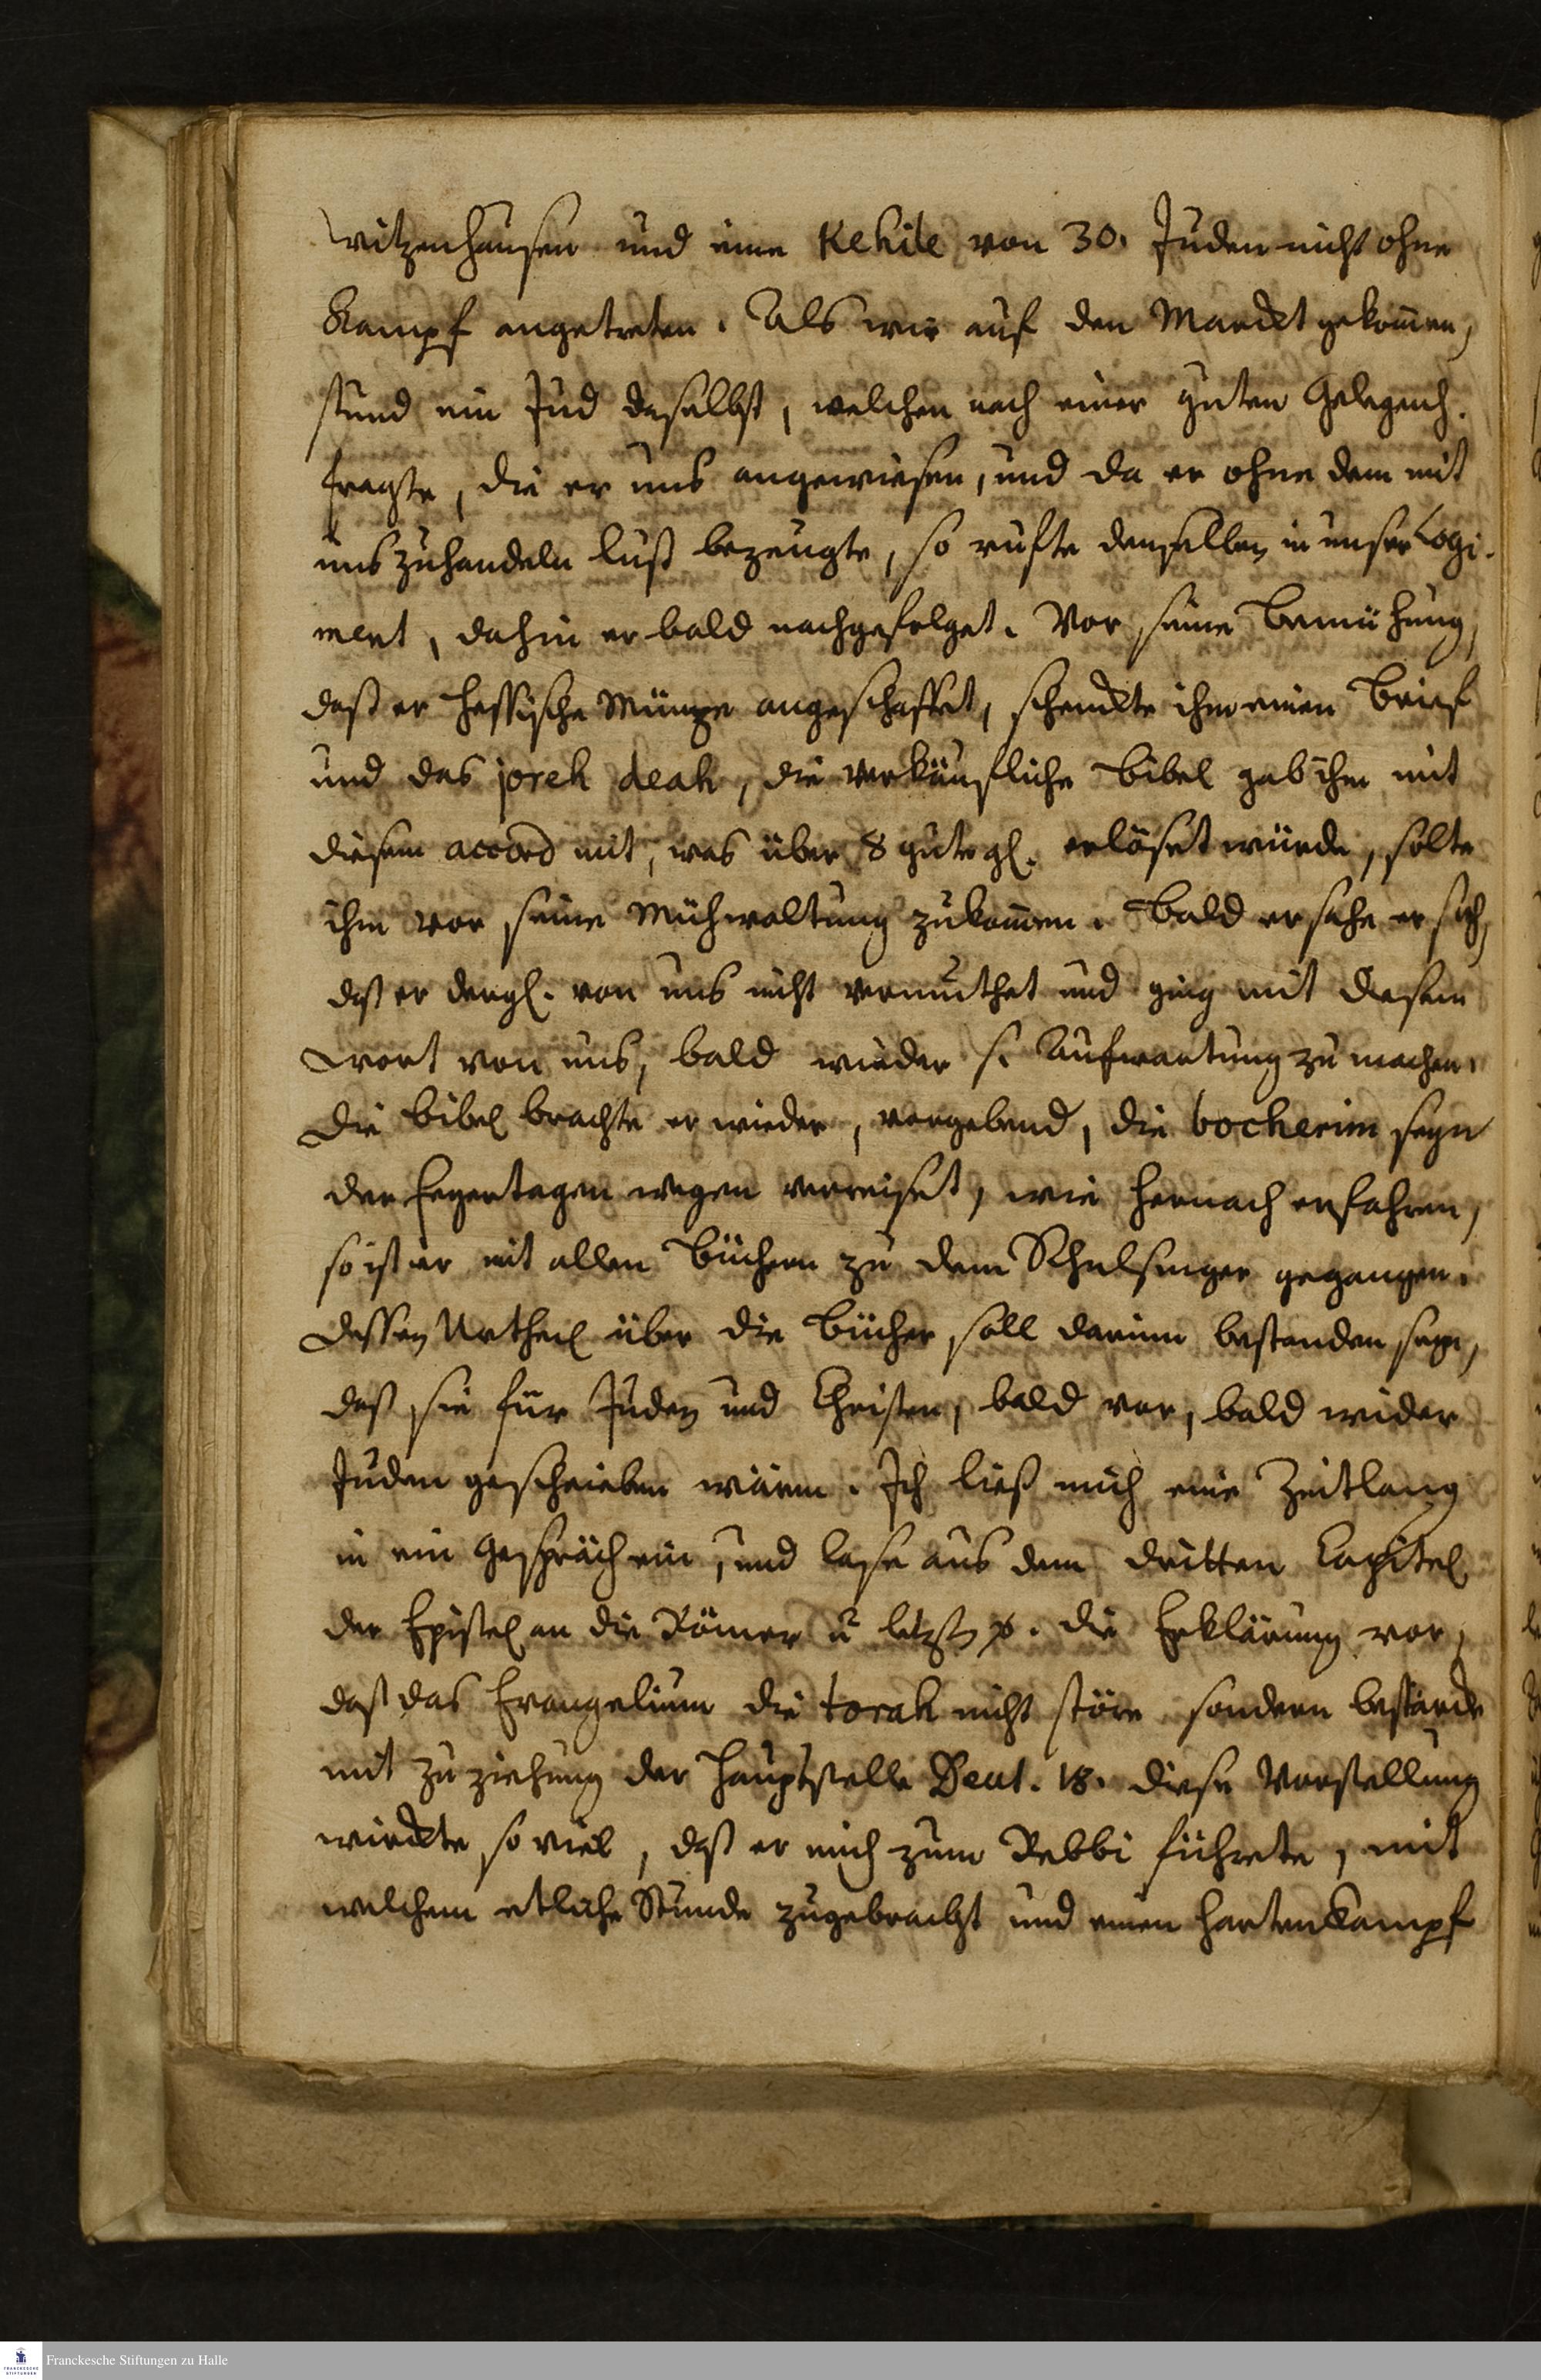 Witzenhausen und eine Kehile von 30. Juden nicht ohne
Kampf angetreten. Als wir auf den Marckt gekom̄en,
stund ein Jud daselbst, welchen nach einer guten Gelegenh.
fragte, die er uns angewiesen, und da er ohne dem mit
uns zuhandeln lust bezeugte, so rufte denselben in unser Logi-
ment, dahin er bald nachgefolget. Vor seine Bemühung,
daß er Hessische Müntze angeschaffet, schenckte ihm einen Brief
und das joreh deah, die verkäufliche Bibel gab ihm mit
diesem accord mit, was über 8 gute gl. erlöset würde, solte
ihm vor seine Mühwaltung zukom̄en. Bald ersahe er sich,
daß er dergl. von uns nicht vermuthet und ging mit diesem
Wort von uns, bald wieder s. Aufwartung zu machen.
Die Bibel brachte er wieder, vorgebend, die bocherim seyn
der Feyertagen wegen verreiset, wie hernach erfahren,
so ist er mit allen Büchern zu dem Schulsinger gegangen.
Dessen Urtheil über die Bücher soll darinn bestanden seyn,
daß sie für Juden und Christen, bald vor, bald wider
Juden geschrieben wären. Ich ließ mich eine Zeitlang
in ein Gespräch ein, und lase aus dem dritten Capitel
der Epistel an die Römer u letzten die Erklärung vor,
daß das Evangelium die torah nicht störe sondern bestärcke
mit zuziehung der Hauptstelle Deut. 18. diese Vorstellung
wirckte so viel, daß er mich zum Rebbi führete, mit
welchem etliche Stunde zugebracht und einen harten Kampf
Franckesche Stiftungen zu Halle